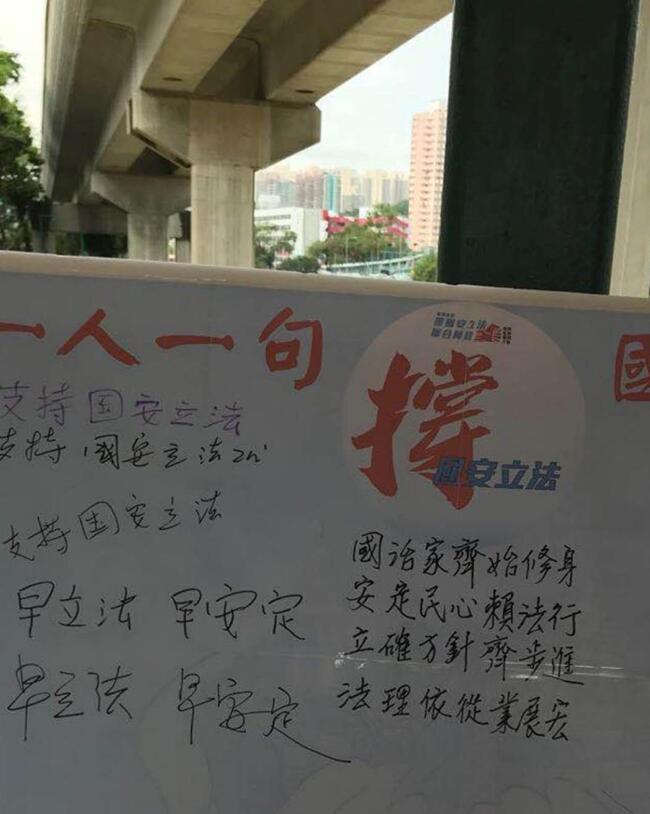 一人一句
撐
國安立法
國
支持国安立法
支持國安立法
支持国安立法
早立法 早安定
早立法 早安定
國治家齊始修身
安定民心賴法行
立確方針齊步進
法理依從業展宏